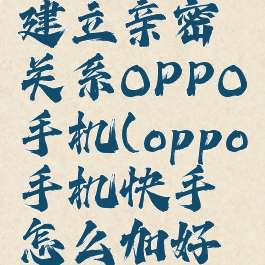 建立亲密
关系OPPO
手机(oppo
手机快手
怎么加好